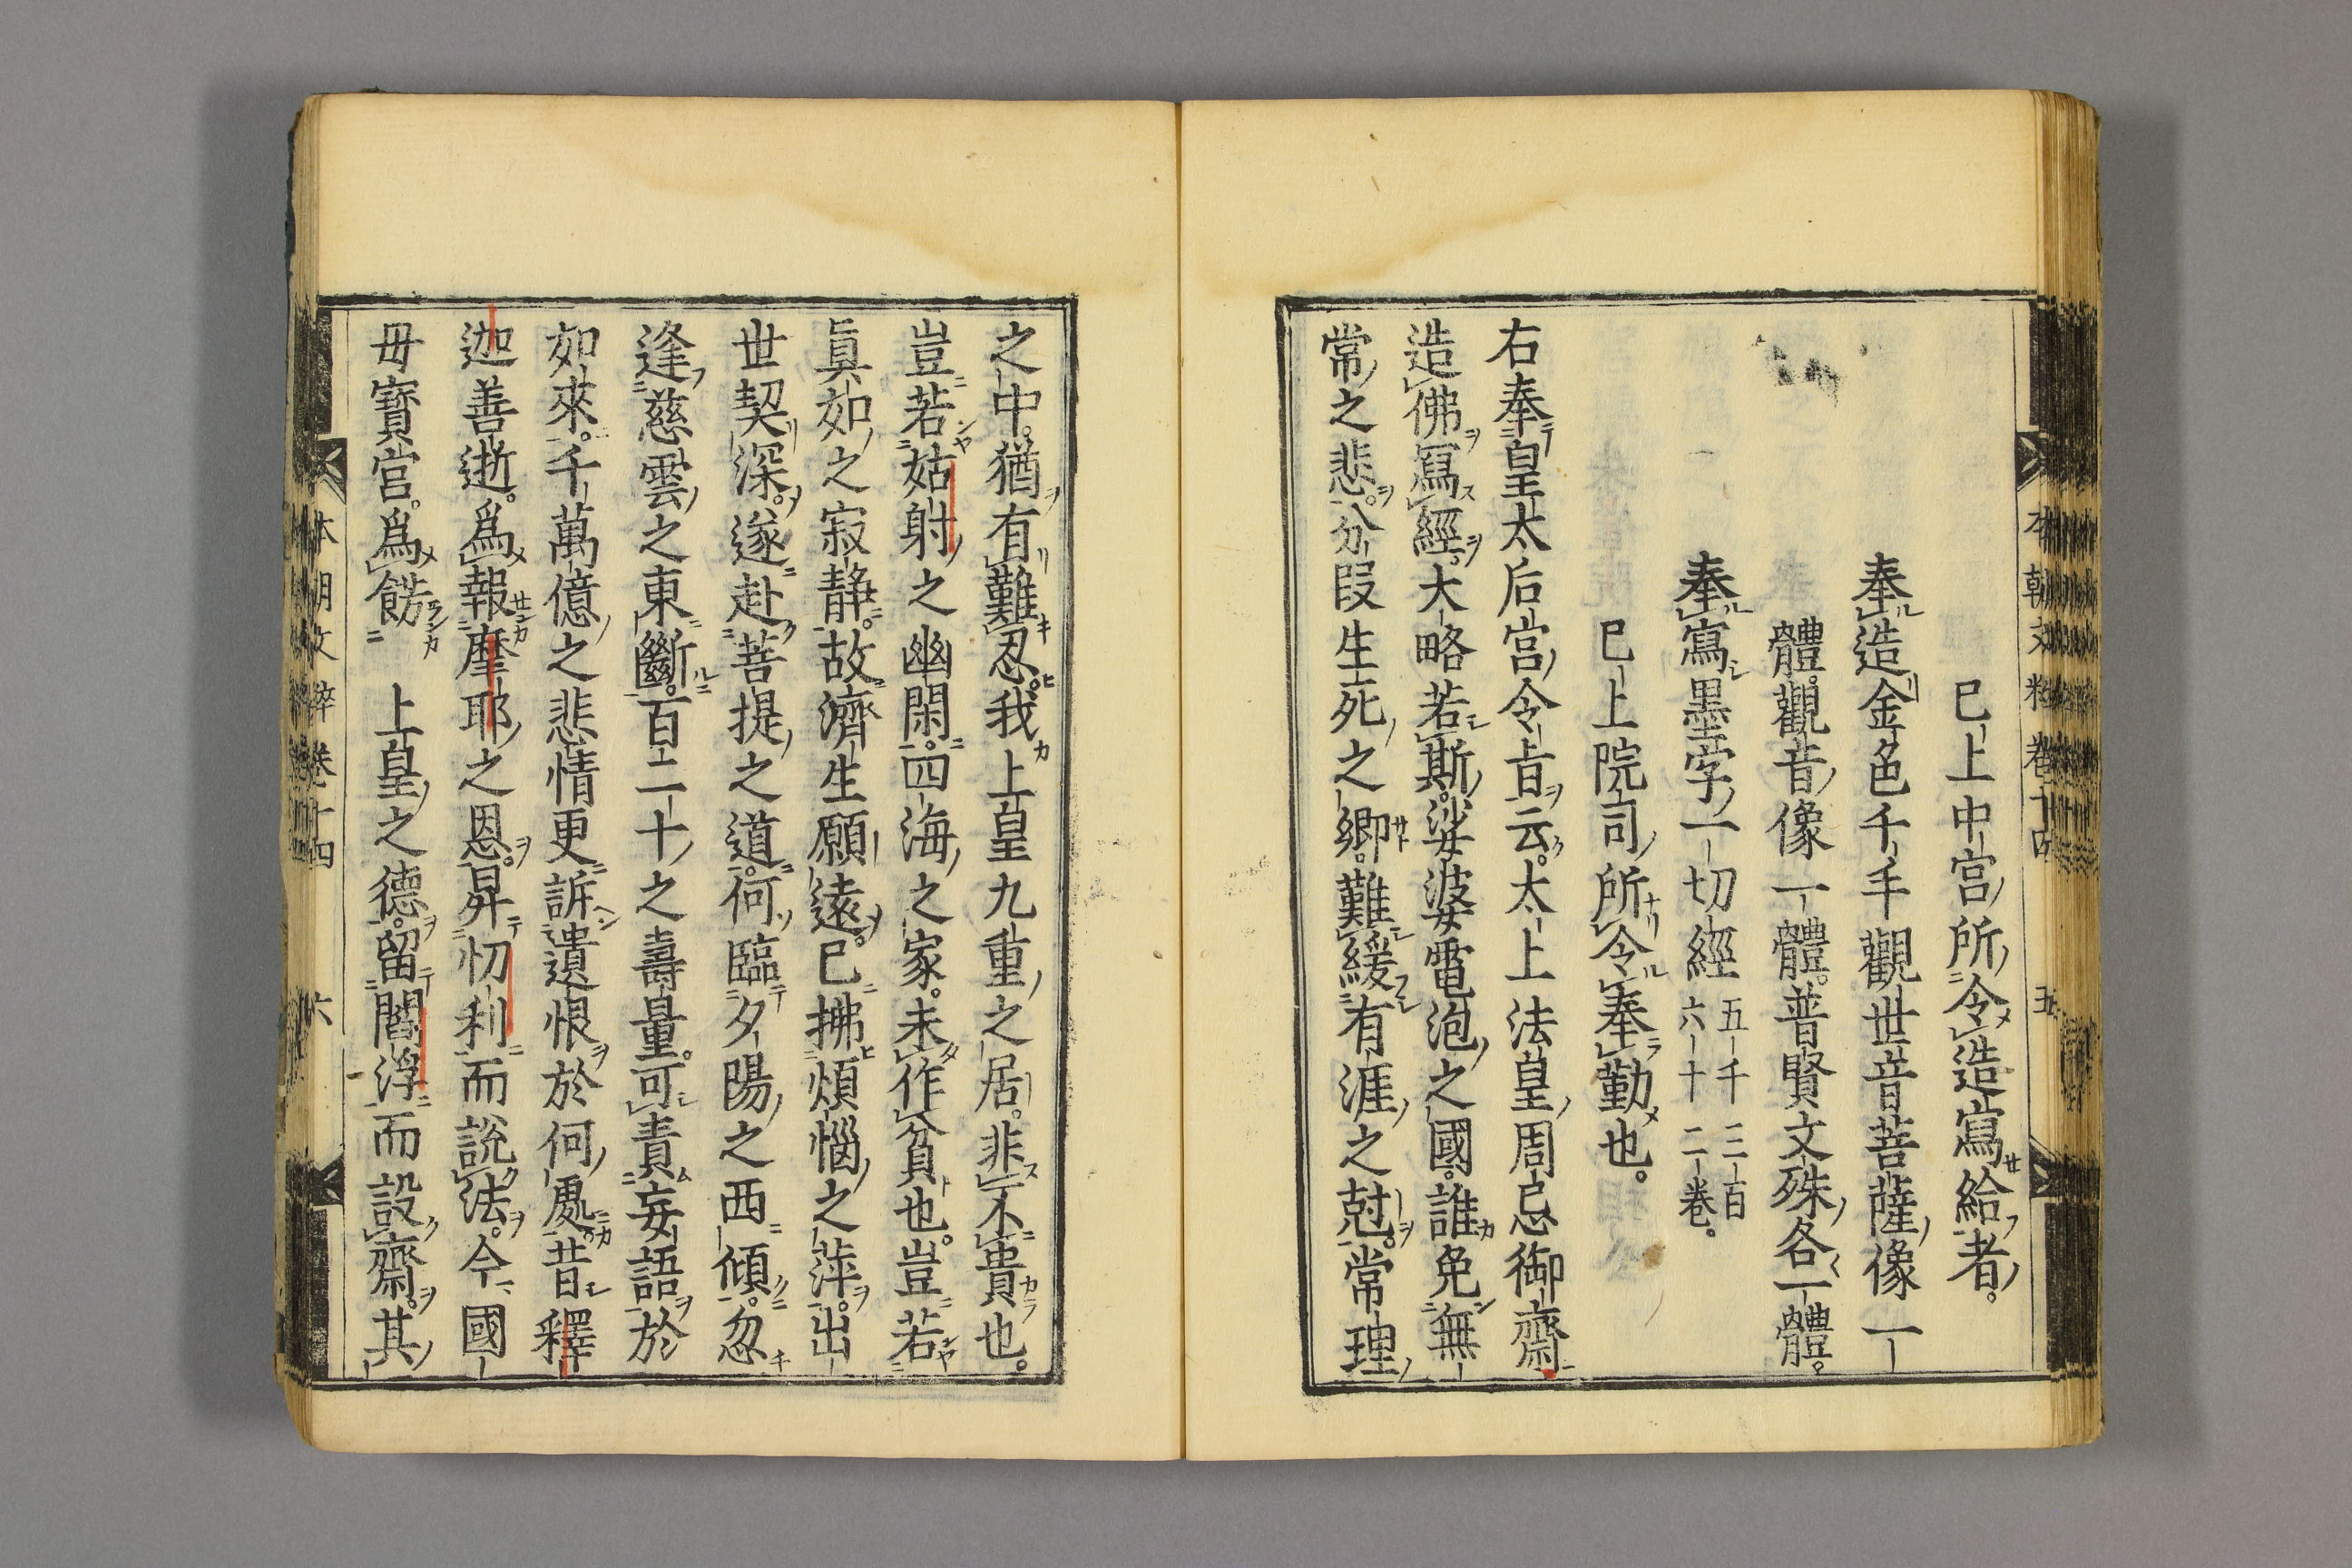 本朝文粋 卷十四 五
已上中宮所令造寫給者。
奉造金色千手觀世音菩薩像一
體。觀音像一體。普賢文殊各一體。
奉寫墨字一切經五千三百六十二卷。
已上院司所令奉勤也。
右奉皇太后宮令旨云。太上法皇周忌御齋
造佛寫經。大略若斯。娑婆電泡之國。誰免無
常之悲。分段生死之鄉。難緩有涯之愆。常理
之中。猶有難忍。我上皇九重之居。非不貴也。
豈若姑射之幽閑。四海之家。未作貧也。豈若
眞如之寂靜。故濟生願遠。已拂煩惱之萍。出
世契深。遂赴菩提之道。何臨夕陽之西傾。忽
逢慈雲之東斷。百二十之壽量。可責妄語於
如來。千萬億之悲情。更訴遺恨於何處。昔釋
迦善逝。爲報摩耶之恩。昇忉利而說法。今國
母寳宮。爲餝 上皇之德。留閻浮而設齋。其
本朝文粹 卷十四 六